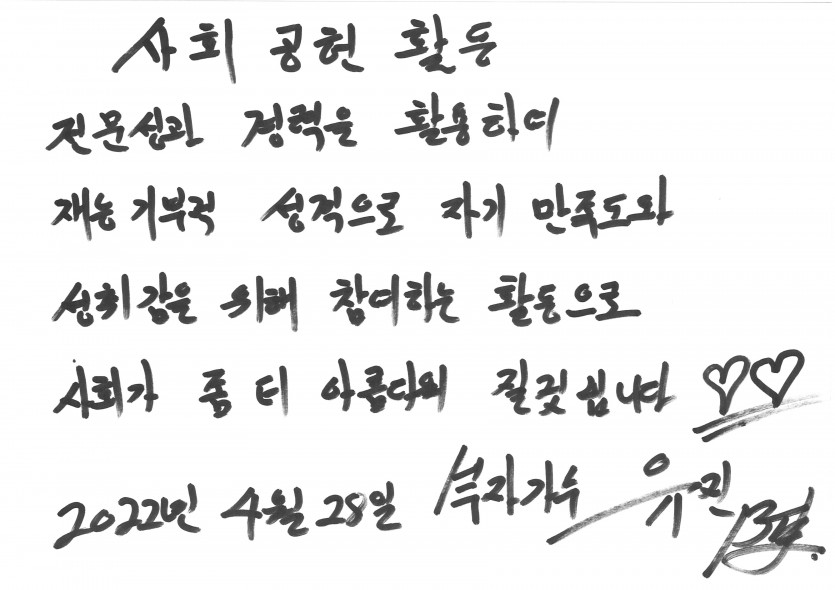 사회 공헌 활동
전문성과 경력을 활용하여
재능 기부적 성격으로 자기 만족도와
성취감을 위해 참여하는 활동으로
사회가 좀 더 아름다워 질것입니다 ♡♡
2022년 4월 28일 부자가수 유진